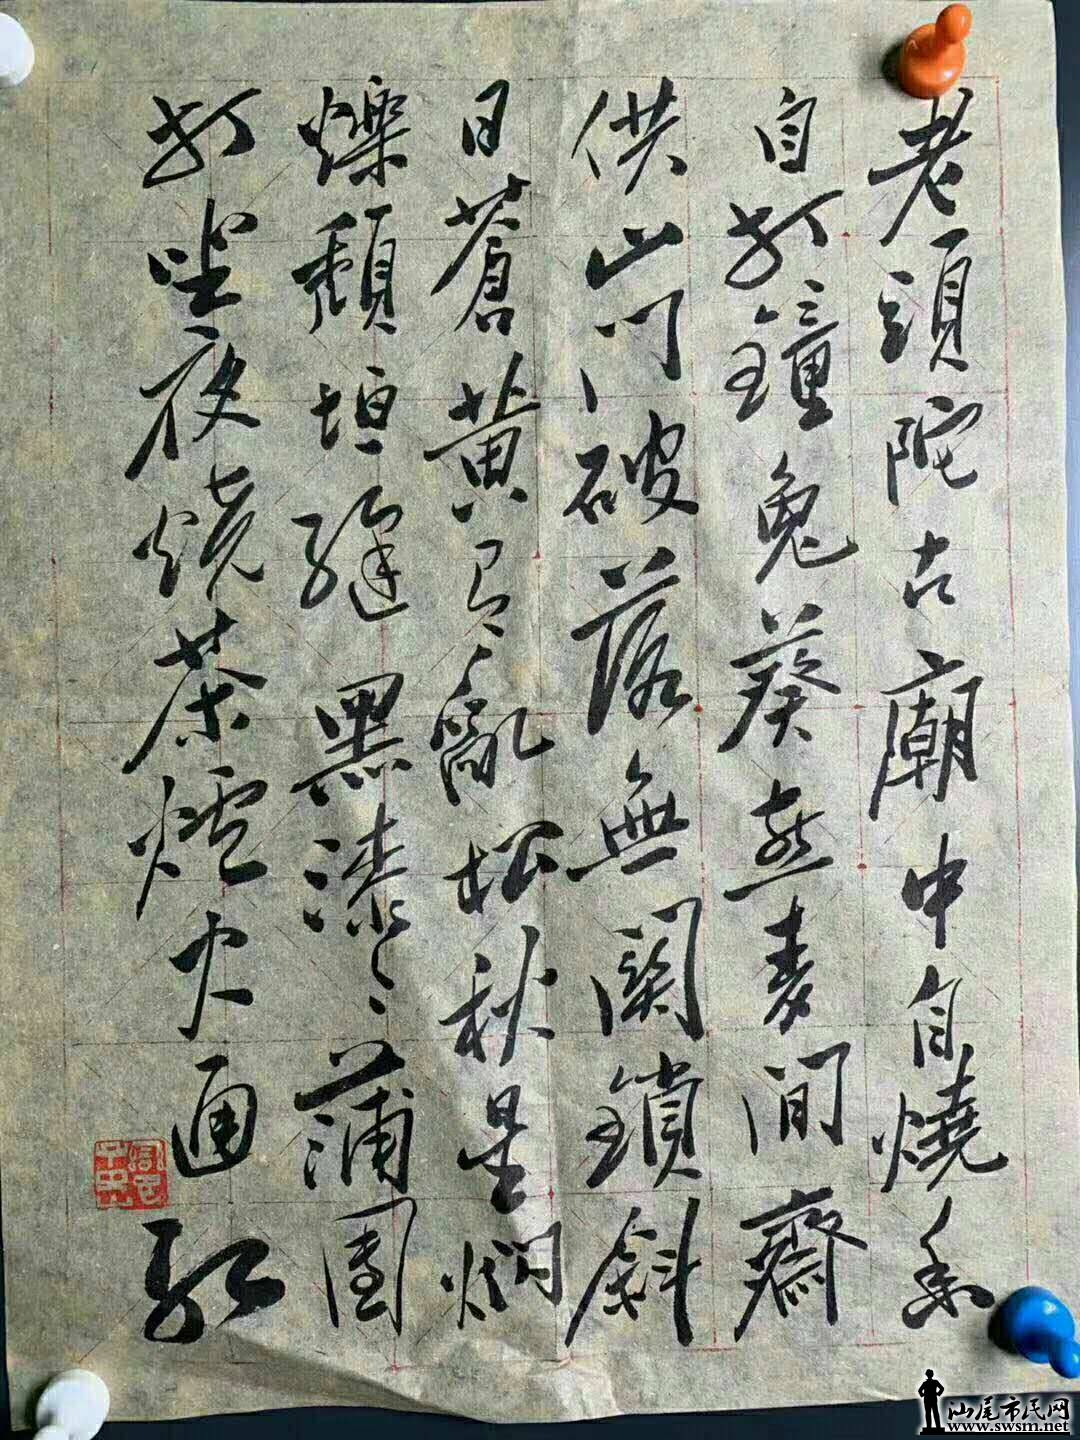 老頭陀古廟中自燒香
自打鐘兔葵燕麥閒齋
供山門破落無関鎖斜
日蒼黃有亂松秋星閃
爍頹垣縫黑漆々蒲團
打坐夜烧茶爐火通紅
汕尾市民网
www.swsm.net